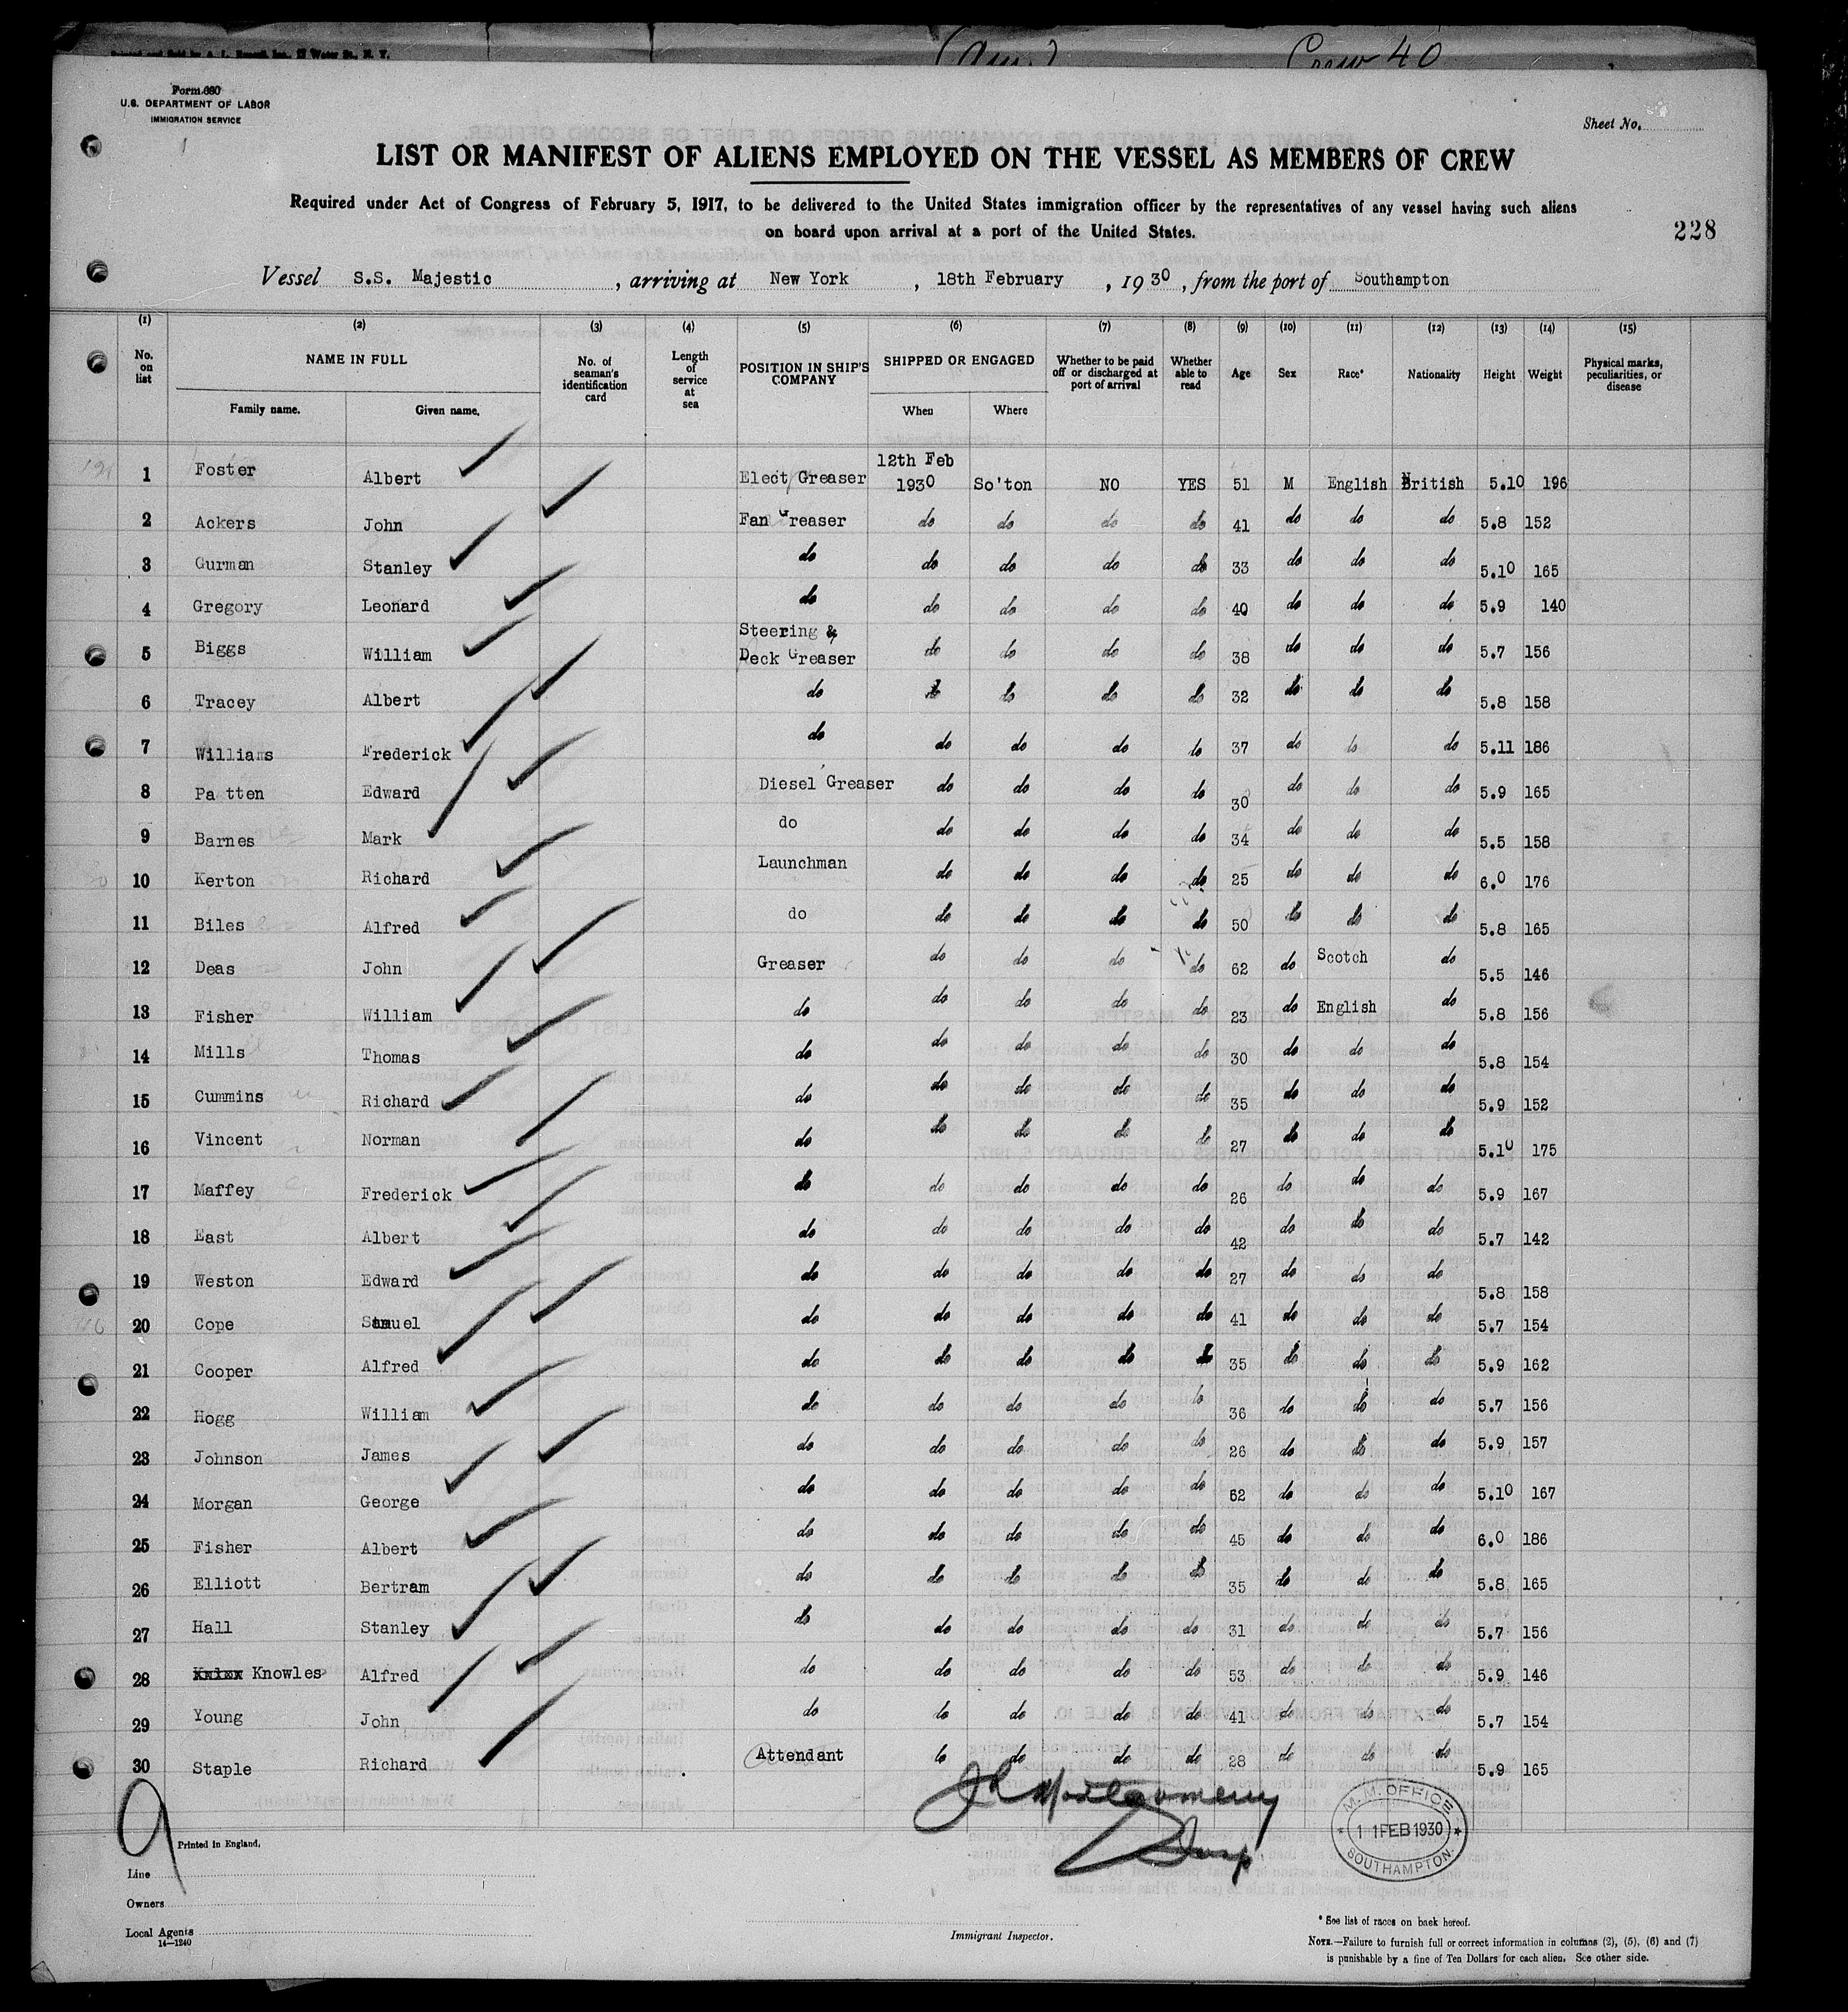 Printed and Sold by A. L. Russell, Inc., 12 Water St., N. Y.
Crew 40
Form 680
U.S. DEPARTMENT OF LABOR
IMMIGRATION SERVICE
Sheet No.
LIST OR MANIFEST OF ALIENS EMPLOYED ON THE VESSEL AS MEMBERS OF CREW
Required under Act of Congress of February 5, 1917, to be delivered to the United States immigration officer by the representatives of any vessel having such aliens
on board upon arrival at a port of the United States.
228
Vessel S.S. Majestic, arriving at New York, 18th February, 1930, from the port of Southampton
(1) (2) (3) (4) (5) (6) (7) (8) (9) (10) (11) (12) (13) (14) (15)
No. on list NAME IN FULL No. of seaman's identification card Length of service at sea POSITION IN SHIP'S COMPANY SHIPPED OR ENGAGED Whether to be paid off or discharged at port of arrival Whether able to read Age Sex Race* Nationality Height Weight Physical marks, peculiarities, or disease
Family name. Given name. When Where
1 Foster Albert Elect Greaser 12th Feb 1930 So'ton NO YES 51 M English British 5.10 196
2 Ackers John Fan Greaser do do do do 41 do do do 5.8 152
3 Gurman Stanley do do do do do 33 do do do 5.10 165
4 Gregory Leonard do do do do do 40 do do do 5.9 140
5 Biggs William Steering & Deck Greaser do do do do 38 do do do 5.7 156
6 Tracey Albert do do do do do 32 do do do 5.8 158
7 Williams Frederick do do do do do 37 do do do 5.11 186
8 Patten Edward Diesel Greaser do do do do 30 do do do 5.9 165
9 Barnes Mark do do do do do 34 do do do 5.5 158
10 Kerton Richard Launchman do do do do 25 do do do 6.0 176
11 Biles Alfred do do do do do 50 do do do 5.8 165
12 Deas John Greaser do do do do 62 do Scotch do 5.5 146
13 Fisher William do do do do do 23 do English do 5.8 156
14 Mills Thomas do do do do do 30 do do do 5.8 154
15 Cummins Richard do do do do do 35 do do do 5.9 152
16 Vincent Norman do do do do do 27 do do do 5.10 175
17 Maffey Frederick do do do do do 26 do do do 5.9 167
18 East Albert do do do do do 42 do do do 5.7 142
19 Weston Edward do do do do do 27 do do do 5.8 158
20 Cope Samuel do do do do do 41 do do do 5.7 154
21 Cooper Alfred do do do do do 35 do do do 5.9 162
22 Hogg William do do do do do 36 do do do 5.7 156
23 Johnson James do do do do do 26 do do do 5.9 157
24 Morgan George do do do do do 62 do do do 5.10 167
25 Fisher Albert do do do do do 45 do do do 6.0 186
26 Elliott Bertram do do do do do 35 do do do 5.8 165
27 Hall Stanley do do do do do 31 do do do 5.7 156
28 Knowles Alfred do do do do do 53 do do do 5.9 146
29 Young John do do do do do 41 do do do 5.7 154
30 Staple Richard Attendant do do do do 28 do do do 5.9 165
9
Montgomery
M.M. OFFICE
11 FEB 1930
SOUTHAMPTON
Printed in England.
Line
Owners
Local Agents
14—1240
Immigrant Inspector.
* See list of races on back hereof.
NOTE.—Failure to furnish full or correct information in columns (2), (5), (6) and (7)
is punishable by a fine of Ten Dollars for each alien. See other side.